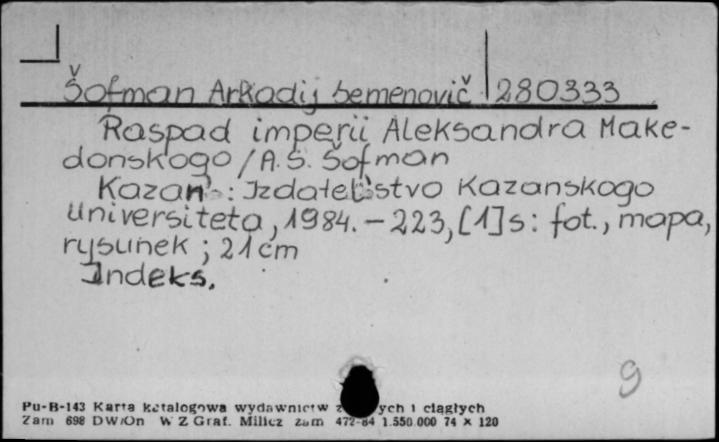 Šofman Arkadij Semenovič 280333
Raspad imperii Aleksandra Make-
donskogo / A. S. Šofman
Kazan' : Izdatel'stvo Kazanskogo
Universiteta, 1984. – 223, [1] s : fot., mapa,
rysunek ; 21 cm
Indeks.
9
Pu-B-143 Karta katalogowa wydawnictw z ych i ciągłych
Zam 698 DW/On W Z Graf. Milicz zam 472-84 1.550.000 74 x 120